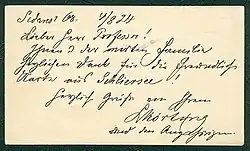 4/8 24
Lieber Herr Professor!
Ihnen & der werten Familie
herzlichen Dank für die freundliche
Karte aus Schliersee!
Herzlich Grüße von Ihrem
und den Angehörigen